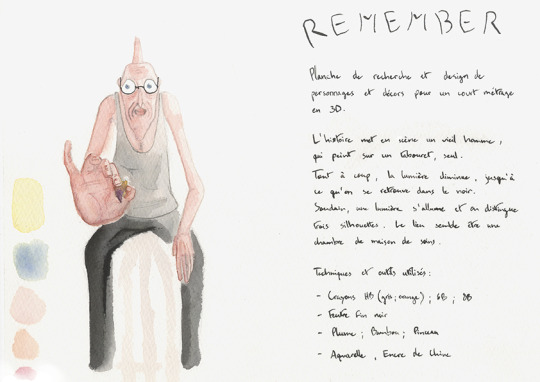 REMEMBER
Planche de recherche et design de
personnages et décors pour un court métrage
en 3D.
L'histoire met en scène un vieil homme,
qui peint sur un tabouret, seul.
Tout à coup, la lumière diminue, jusqu'à
ce qu'on se retrouve dans le noir.
Soudain, une lumière s'allume et on distingue
trois silhouettes. Le lieu semble être une
chambre de maison de soins.
Techniques et outils utilisés :
- Crayons HB (gris ; orange) ; 6B ; 8B
- Feutre fin noir
- Plume ; Bambou ; Pinceau
- Aquarelle, Encre de Chine